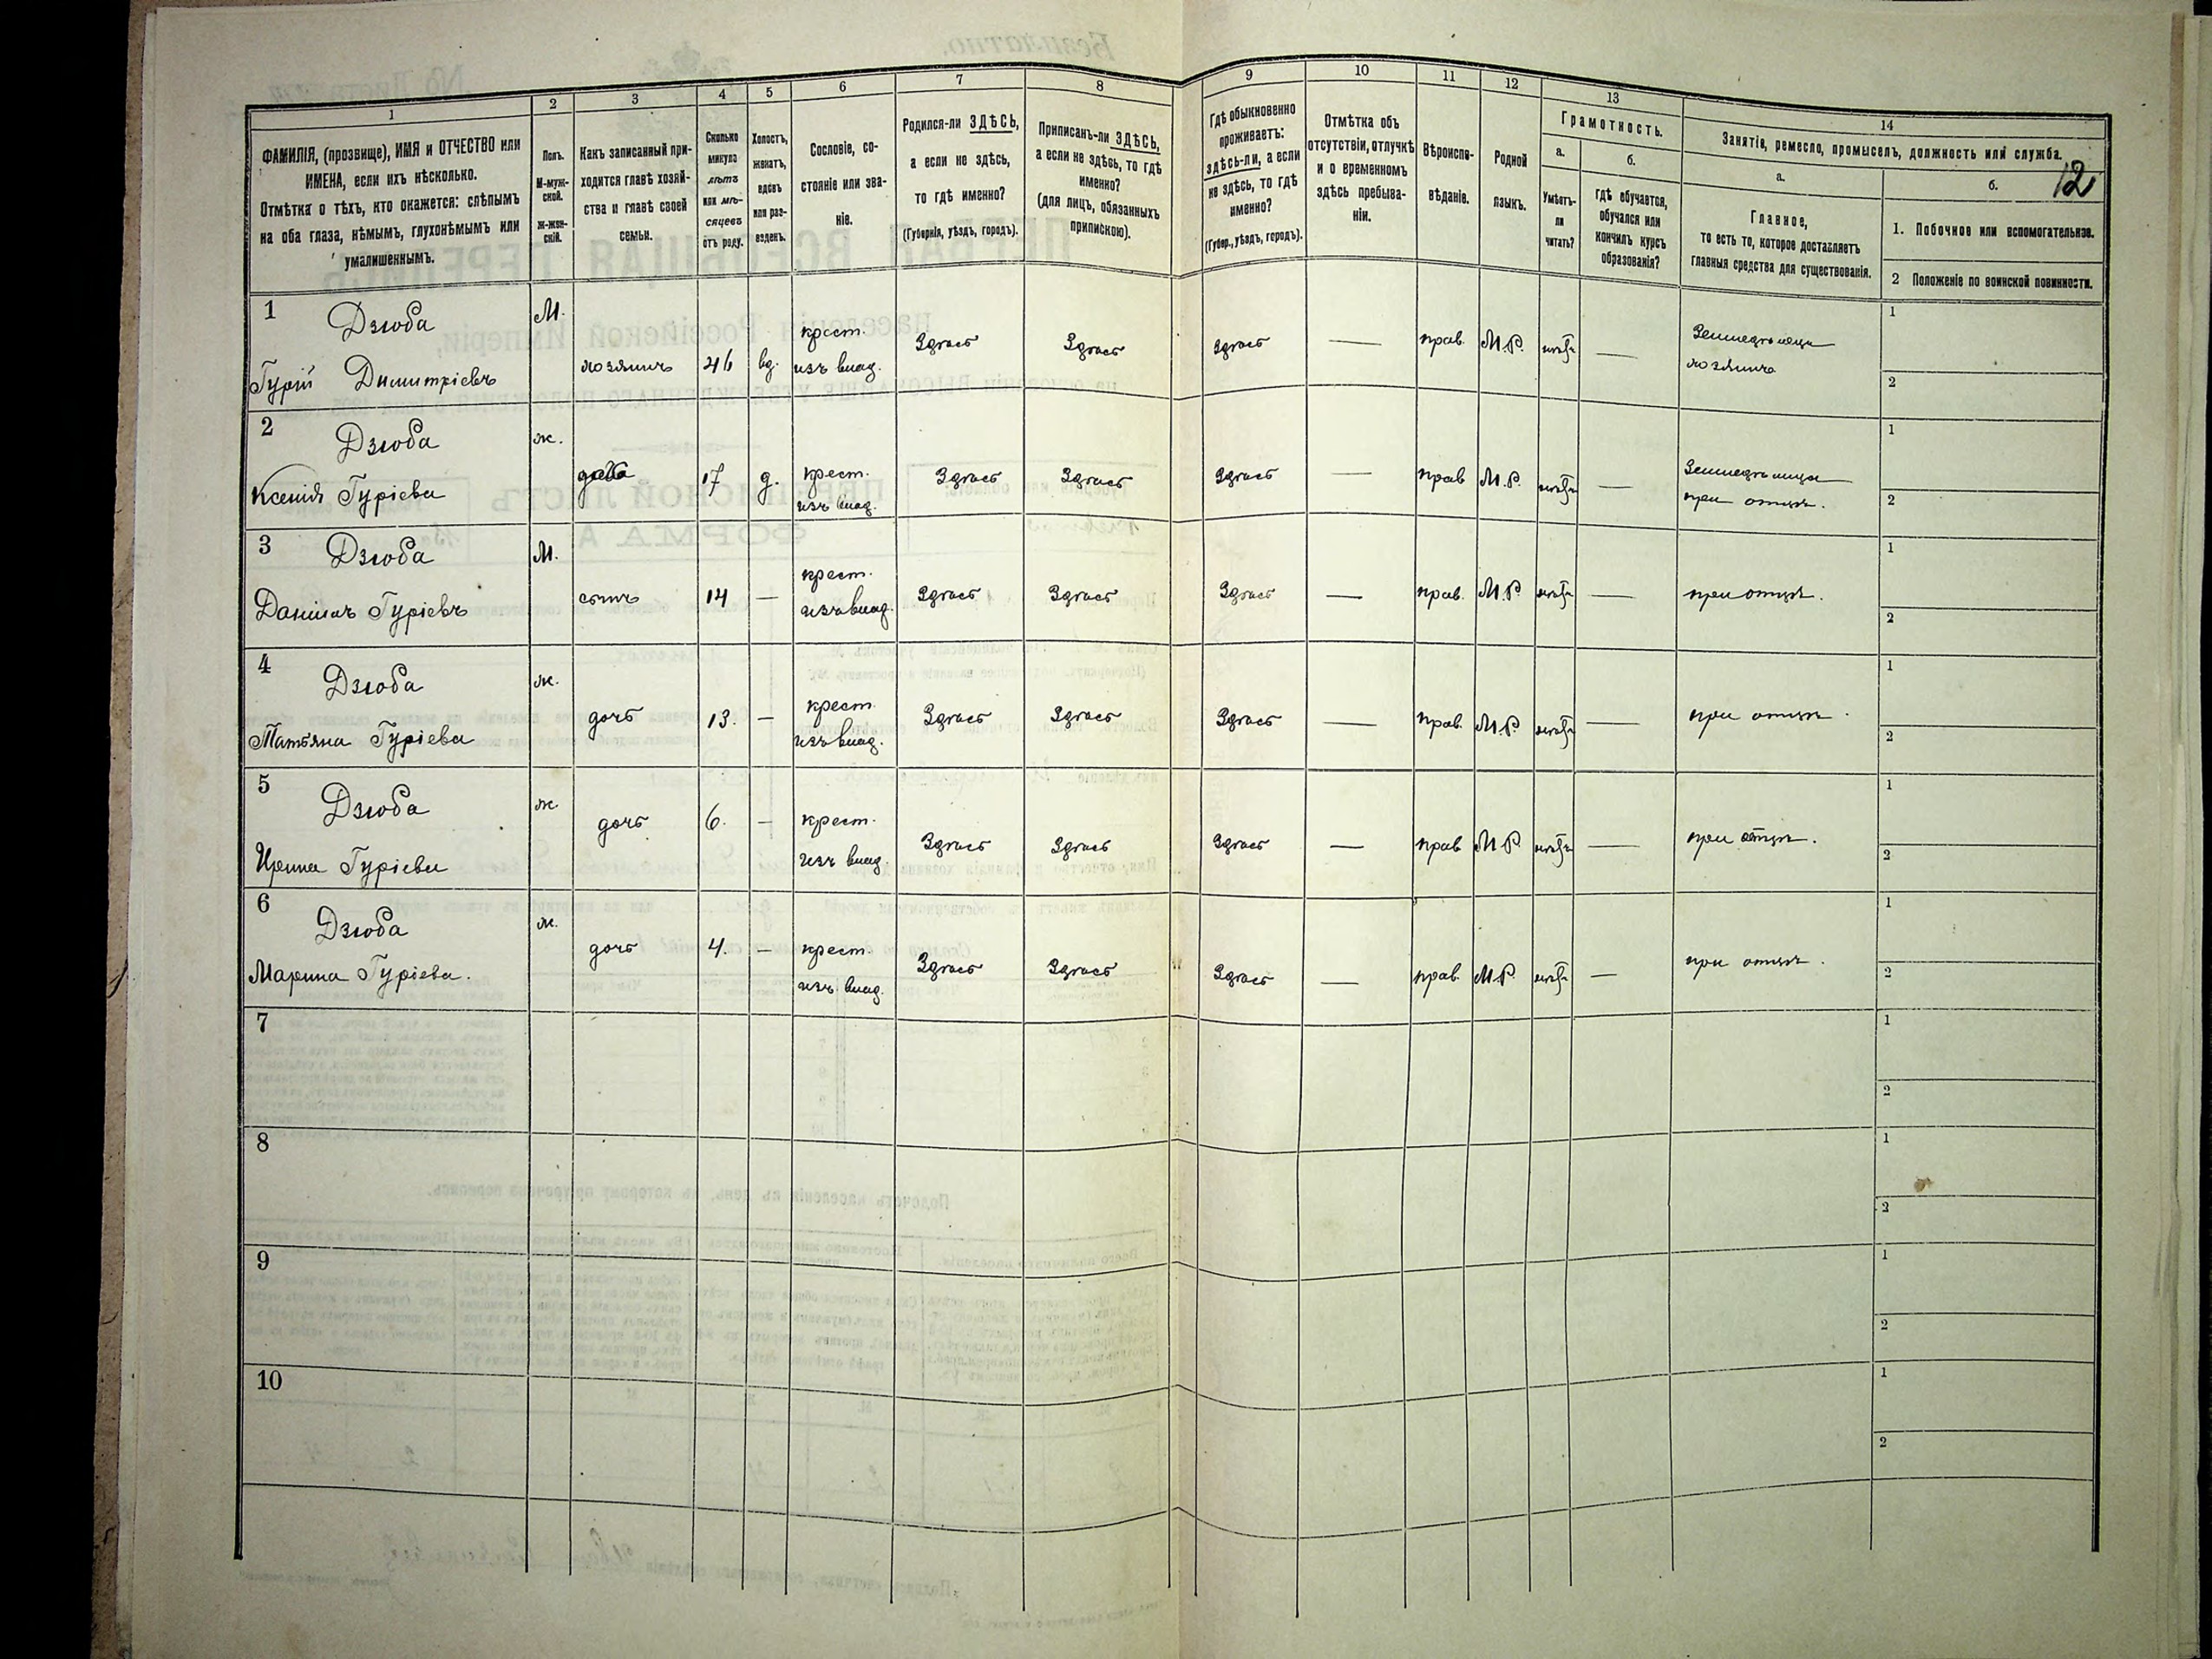 1 2 3 4 5 6 7 8 9 10 11 12 13 14
ФАМИЛІЯ, (прозвище), ИМЯ и ОТЧЕСТВО или
ИМЕНА, если ихъ нѣсколько.
Отмѣтка о тѣхъ, кто окажется: слѣпымъ
на оба глаза, нѣмымъ, глухонѣмымъ или
умалишеннымъ.
Полъ.
М-муж-
ской.
Ж-жен-
скій.
Какъ записанный при-
ходится главѣ хозяй-
ства и главѣ своей
семьи.
Сколько
минуло
лѣтъ
или мѣ-
сяцевъ
отъ роду.
Холостъ,
женатъ,
вдовъ
или раз-
веденъ.
Сословіе, со-
стояніе или зва-
ніе.
Родился-ли ЗДѢСЬ,
а если не здѣсь,
то гдѣ именно?
(Губернія, уѣздъ, городъ).
Приписанъ-ли ЗДѢСЬ,
а если не здѣсь, то гдѣ
именно?
(для лицъ, обязанныхъ
припискою).
Гдѣ обыкновенно
проживаетъ:
здѣсь-ли, а если
не здѣсь, то гдѣ
именно?
(Губер., уѣздъ, городъ).
Отмѣтка объ
отсутствіи, отлучкѣ
и о временномъ
здѣсь пребыва-
ніи.
Вѣроиспо-
вѣданіе.
Родной
языкъ.
Грамотность.
а.
Умѣетъ-
ли
читать?
б.
Гдѣ обучается,
обучался или
кончилъ курсъ
образованія?
Занятіе, ремесло, промыселъ, должность или служба.
12
а.
Главное,
то есть то, которое доставляетъ
главныя средства для существованія.
б.
1. Побочное или вспомогательное.
2 Положеніе по воинской повинности.
1 Дзюба М. крест. Здѣсь Здѣсь Здѣсь — прав. М.Р. нѣтъ — Земледѣлецъ 1
Гурій Димитріевъ хозяинъ 46 вд. изъ влад. хозяинъ 2
2 Дзюба ж. дочь 17 д. крест. Здѣсь Здѣсь Здѣсь — прав М.Р. нѣтъ — Земледѣлица 1
Ксенія Гуріева изъ влад. при отцѣ. 2
3 Дзюба М. крест. 1
Даніилъ Гуріевъ сынъ 14 — изъ влад. Здѣсь Здѣсь Здѣсь — прав. М.Р. нѣтъ — при отцѣ. 2
4 Дзюба ж. крест. 1
Татьяна Гуріева дочь 13. — изъ влад. Здѣсь Здѣсь Здѣсь — прав. М.Р. нѣтъ — при отцѣ. 2
5 Дзюба ж. дочь 6. — крест. 1
Ирина Гуріева изъ влад. Здѣсь Здѣсь Здѣсь — прав М.Р. нѣтъ — при отцѣ. 2
6 Дзюба ж. дочь 4. — крест. 1
Марина Гуріева. изъ влад. Здѣсь Здѣсь Здѣсь — прав. М.Р. нѣтъ — при отцѣ. 2
7 1
2
8 1
2
9 1
2
10 1
2